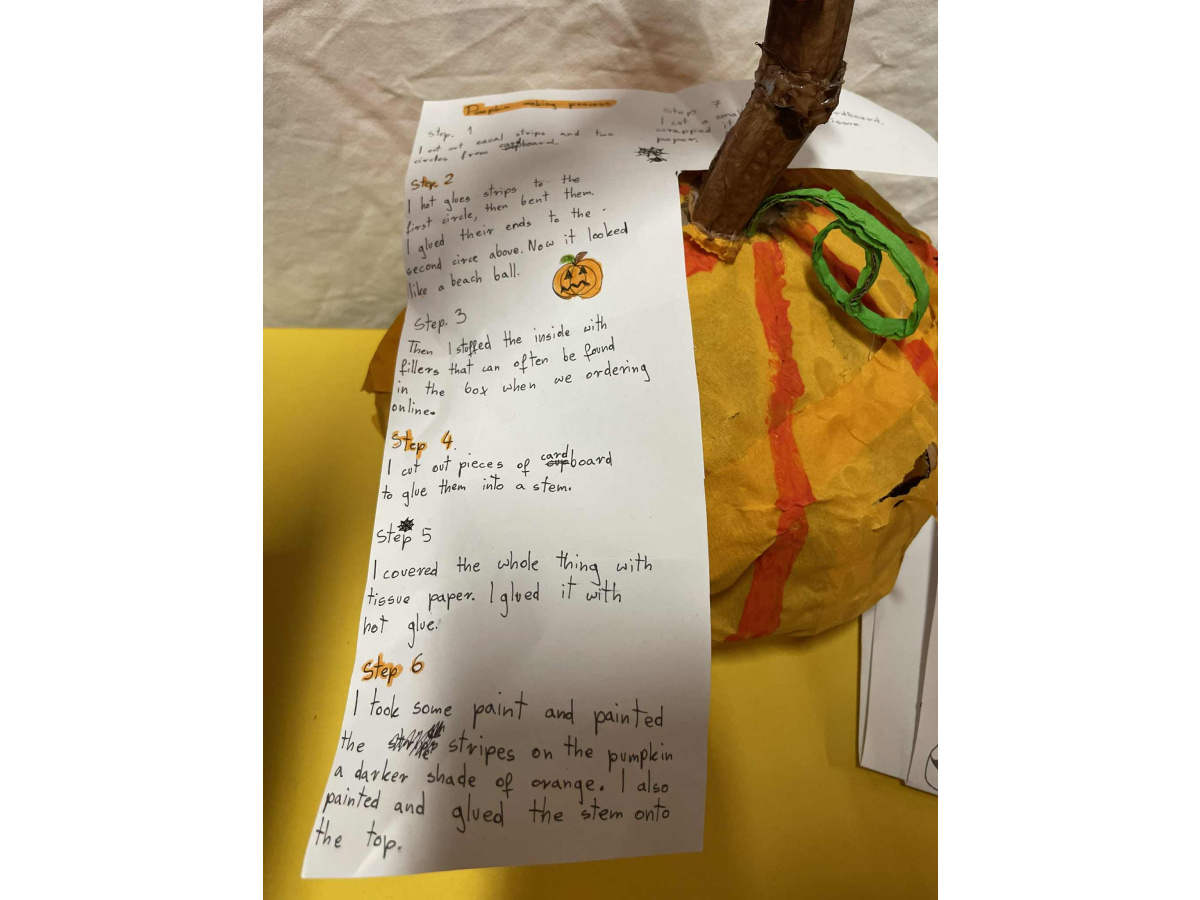 Pumpkin making process
Step. 1
I cut out equal strips and two
circles from cardboard.
Step 2
I hot glues strips to the
first circle, then bent them.
I glued their ends to the
second circe above. Now it looked
like a beach ball.
Step. 3
Then I stuffed the inside with
fillers that can often be found
in the box when we ordering
online.
Step 4.
I cut out pieces of cardboard
to glue them into a stem.
Step 5
I covered the whole thing with
tissue paper. I glued it with
hot glue.
Step 6
I took some paint and painted
the stripes on the pumpkin
a darker shade of orange. I also
painted and glued the stem onto
the top.
Step. 7
I cut a small
wrapped it tissue
paper.